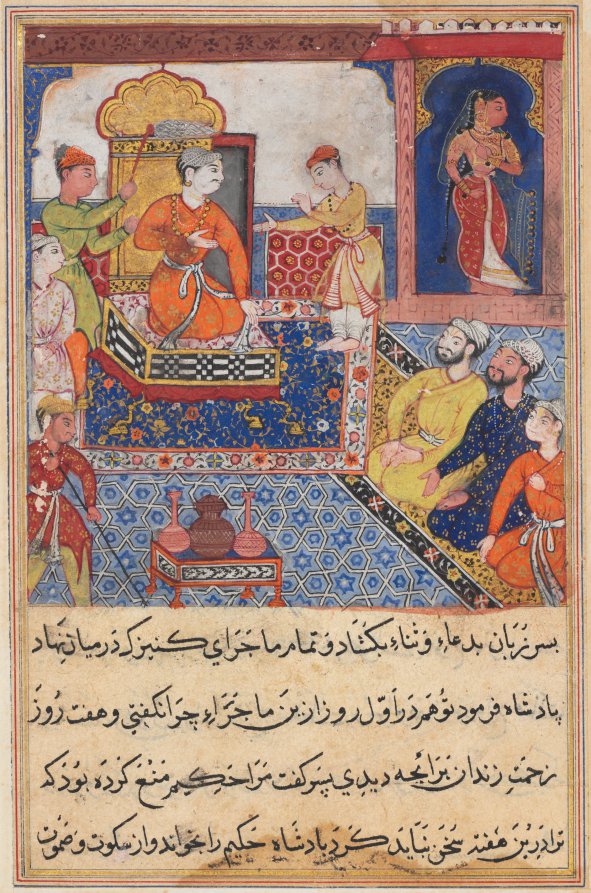 پسر زبان بدعاء و ثناء بکشاد و تمام ماجرای کنیزک در میان نهاد
پادشاه فرمود تو هم در اول روز ازین ماجراء چرا نکفتی و هفت روز
زحمت زندان برائچه دیدی پسر کفت مرا حکیم منع کرده بود که
ترا درین هفته سخن نباید کرد پادشاه حکیم را بخواند و از سکوت و صموت